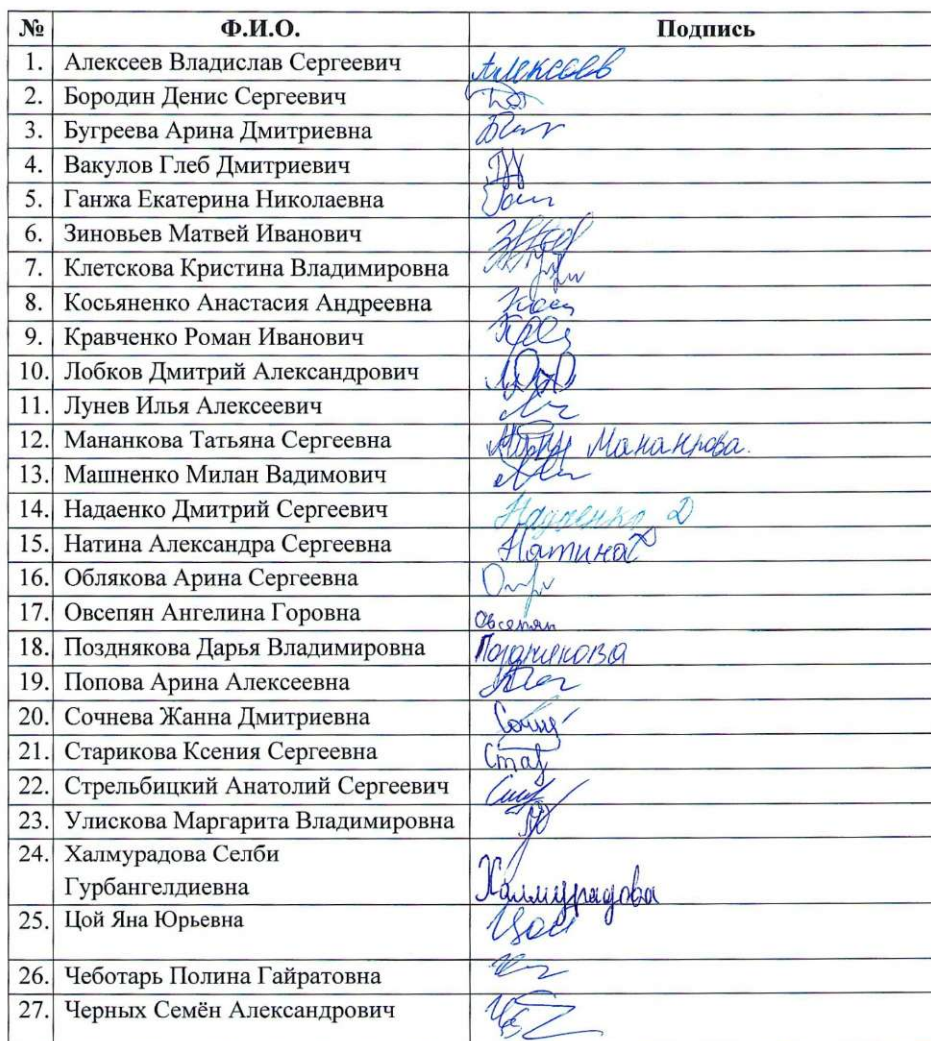 № Ф.И.О. Подпись
1. Алексеев Владислав Сергеевич Алексеев
2. Бородин Денис Сергеевич
3. Бугреева Арина Дмитриевна
4. Вакулов Глеб Дмитриевич
5. Ганжа Екатерина Николаевна
6. Зиновьев Матвей Иванович
7. Клетскова Кристина Владимировна
8. Косьяненко Анастасия Андреевна
9. Кравченко Роман Иванович
10. Лобков Дмитрий Александрович
11. Лунев Илья Алексеевич
12. Мананкова Татьяна Сергеевна Мананкова.
13. Машненко Милан Вадимович
14. Надаенко Дмитрий Сергеевич Надаенко Д
15. Натина Александра Сергеевна Натина
16. Облякова Арина Сергеевна
17. Овсепян Ангелина Горовна Овсепян
18. Позднякова Дарья Владимировна Позднякова
19. Попова Арина Алексеевна
20. Сочнева Жанна Дмитриевна
21. Старикова Ксения Сергеевна
22. Стрельбицкий Анатолий Сергеевич
23. Улискова Маргарита Владимировна
24. Халмурадова Селби
Гурбангелдиевна Халмурадова
25. Цой Яна Юрьевна Цой
26. Чеботарь Полина Гайратовна
27. Черных Семён Александрович